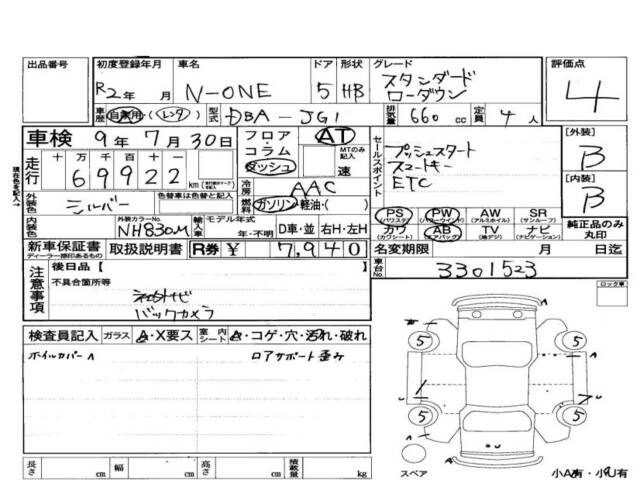 出品番号 初度登録年月 車名 ドア 形状 グレード 評価点
R2年 月 N-ONE 5 HB スタンダード ローダウン 4
車歴 自家用・(レンタ) 型式 DBA-JG1 排気量 660 cc 定員 4人
車検 9年7月30日 フロア・コラム ダッシュ AT MTのみ記入 速
走行 十万千百十一 69922 km
冷房 AAC
燃料 ガソリン・軽油・( )
セールスポイント プッシュスタート
スマートキー
ETC
[外装] B
[内装] B
現在色を記入→
外装色 色替車は色替と記入 シルバー
内装色 外装カラーNo. NH830M 輸入車 モデル年式 年・不明 D車・並 右H・左H
PS (パワステ) PW (パワーウィンド) AW (アルミホイル) SR (サンルーフ)
カワ (カワシート) AB (エアバッグ) TV (地デジ) ナビ (ナビゲーション)
純正品のみ丸印
新車保証書 ディーラー捺印あるもの 取扱説明書 R券 ¥ 7,940 名変期限 月 日迄
注意事項 後日品 [ ] 車台No. 3301523
不具合箇所等 ロック車
バックカメラ
検査員記入 ガラス A・X要ス 室内シート A・コゲ・穴・汚れ・破れ
ホイルカバーA ロアサポート歪み
5 5 A
U
5 5
A
U
長さ cm 幅 cm 高さ cm 積載量 kg
スペア 小A有・小U有